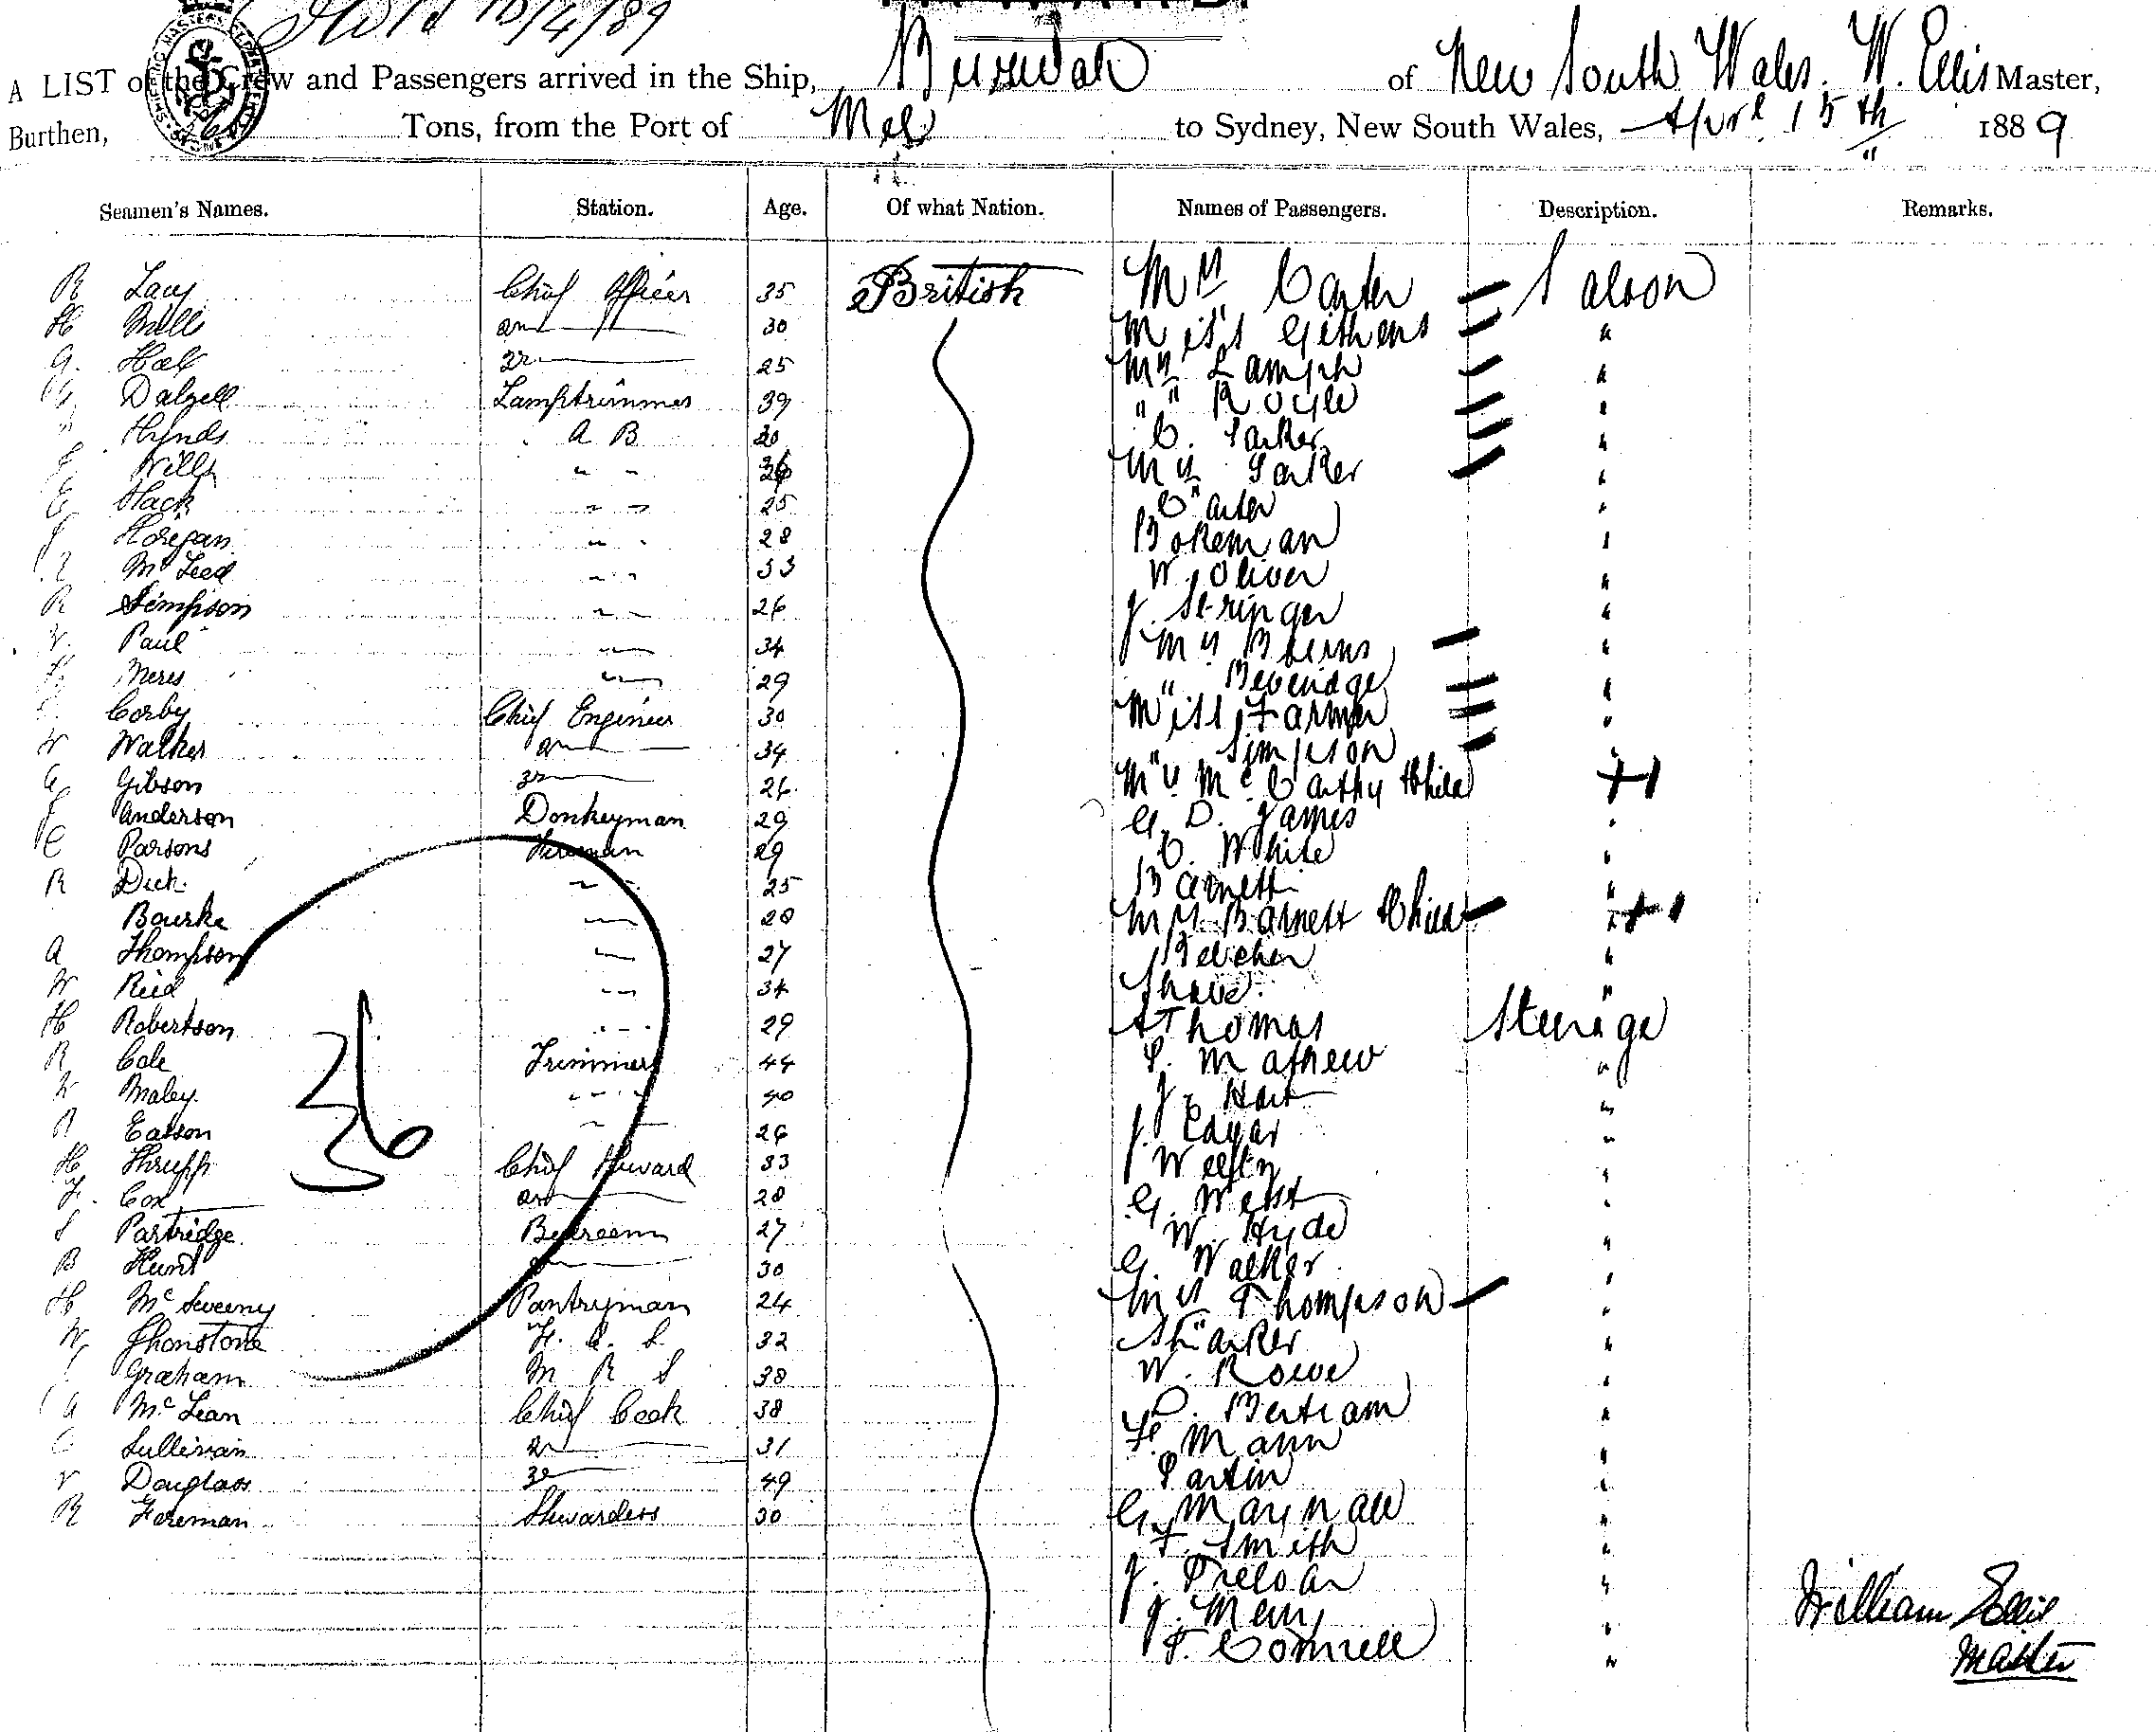 10/4/89
A LIST of the Crew and Passengers arrived in the Ship, of New South Wales. W. Ellis Master,
Burthen, Tons, from the Port of Mel to Sydney, New South Wales, April 15th 1889
Seamen's Names. Station. Age. Of what Nation. Names of Passengers. Description. Remarks.
R Lacy Chief Officer 35 British Mrs Carter Saloon
H Mill 2nd 30 Miss Githens "
G. Hall 3r 25 Mrs Lamph "
Dalzell Lamptrimmer 39 " " Royle "
Hynds A B 30 C. Parker "
Wills " " Mrs Parker "
E Hack " " 25 Carter "
Horegan " " 28 Bokeman "
McLeod " " 33 W. Oliver "
R Simpson " " 26 J. Stringer "
Paul " 34 Mrs Burns "
Meres " 29 " Beveridge "
Corby Chief Engineer 30 Miss Farmer "
W Walker 2nd 34 " Simpson "
G Gibson 3r 26 Mrs McCarthy & Child +1
Anderson Donkeyman 29 G. D. James "
C Parsons Fireman 29 C. White "
R Dick " " 25 Barnett "
Bourke " 28 Mrs Barnett & Child " +1
A Thompson " 27 Belcher "
W Reid " 34 "
H Robertson " " 29 A Thomas Steerage
R Cole Trimmer 44 P. Mathew "
Maley " " 40 J. Hart "
R Easson " 26 J. Edgar "
H Thrupp Chief Steward 33 "
F. Cox 2nd 28 G. West "
S Partridge Bedroom 27 W. Hyde "
B Hunt 30 G. Walker "
H McSweeny Pantryman 24 Mrs Thompson "
W Jhonstone F. C. S. 32 "
Graham M R S 38 W. Rowe "
A McLean Chief Cook 38 D. Bertram "
C Sullivan 2n 31 F. Mann "
Douglass 3r 49 "
R Foreman Stewardess 30 G. "
F. Smith "
J. Treloar "
J. "
T. Connell "
36
William Ellis
Master